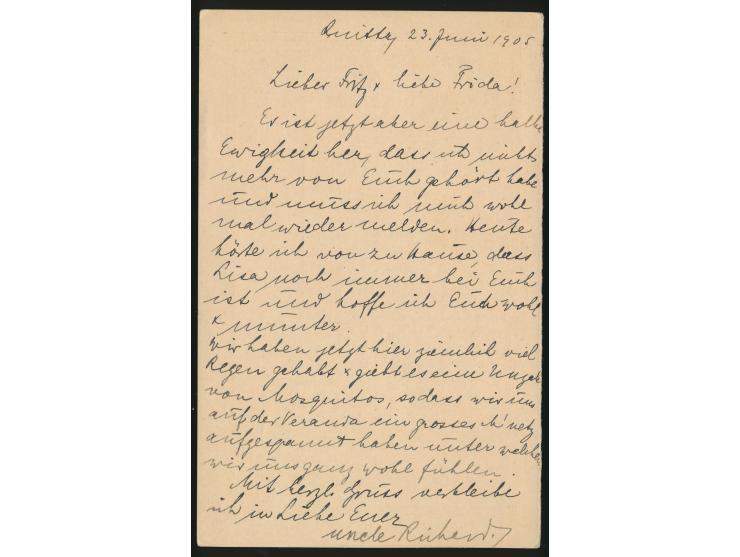 23. Juni 1905
Lieber Fritz & liebe Frida!
Es ist jetzt aber eine halbe
Ewigkeit her, dass ich nichts
mehr von Euch gehört habe
und muss ich mich wohl
mal wieder melden. Heute
hörte ich von zu Hause, dass
Lisa noch immer bei Euch
ist und hoffe ich Euch wohl
& munter.
Wir haben jetzt hier ziemlich viel
Regen gehabt & giebt es eine
von Mosquitos, sodass wir uns
auf der Veranda ein grosses M'netz
aufgespannt haben unter welchem
wir uns ganz wohl fühlen.
Mit herzl. Gruss verbleibe
ich in Liebe Euer
uncle Richard.